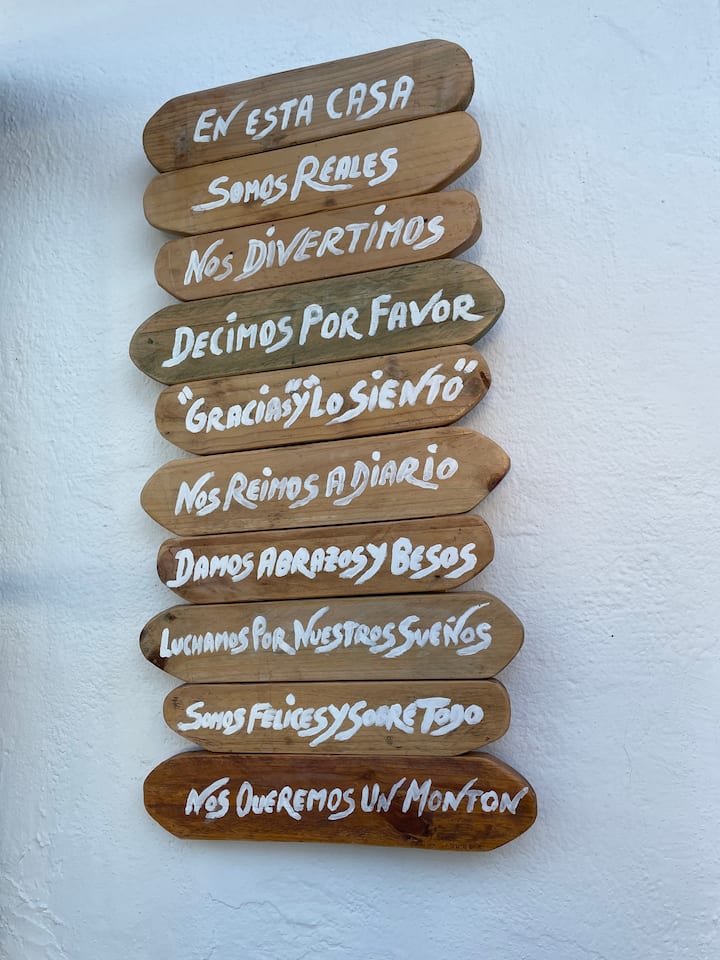 EN ESTA CASA
SOMOS REALES
NOS DIVERTIMOS
DECIMOS POR FAVOR
"GRACIAS" Y "LO SIENTO"
NOS REIMOS A DIARIO
DAMOS ABRAZOS Y BESOS
LUCHAMOS POR NUESTROS SUEÑOS
SOMOS FELICES Y SOBRE TODO
NOS QUEREMOS UN MONTON